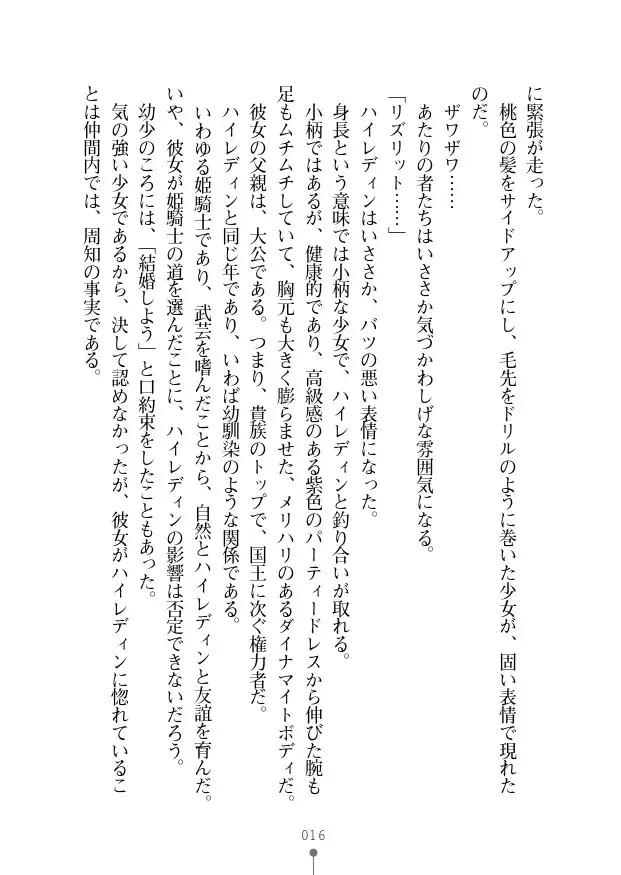 に緊張が走った。
　桃色の髪をサイドアップにし、毛先をドリルのように巻いた少女が、固い表情で現れた
のだ。
　ザワザワ……
　あたりの者たちはいささか気づかわしげな雰囲気になる。
「リズリット……」
　ハイレディンはいささか、バツの悪い表情になった。
　身長という意味では小柄な少女で、ハイレディンと釣り合いが取れる。
　小柄ではあるが、健康的であり、高級感のある紫色のパーティードレスから伸びた腕も
足もムチムチしていて、胸元も大きく膨らませた、メリハリのあるダイナマイトボディだ。
　彼女の父親は、大公である。つまり、貴族のトップで、国王に次ぐ権力者だ。
　ハイレディンと同じ年であり、いわば幼馴染のような関係である。
　いわゆる姫騎士であり、武芸を嗜んだことから、自然とハイレディンと友誼を育んだ。
いや、彼女が姫騎士の道を選んだことに、ハイレディンの影響は否定できないだろう。
　幼少のころには、「結婚しよう」と口約束をしたこともあった。
　気の強い少女であるから、決して認めなかったが、彼女がハイレディンに惚れているこ
とは仲間内では、周知の事実である。
016